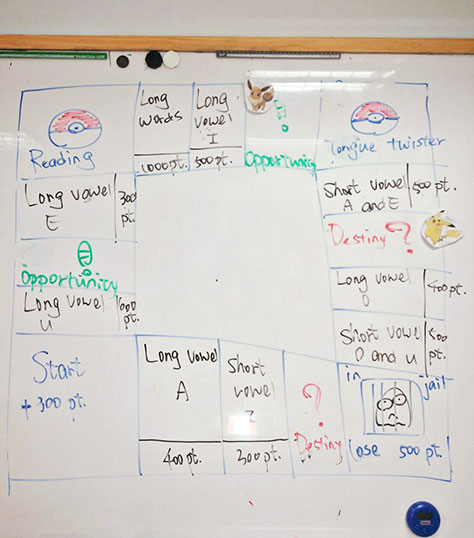 Reading
Long
words
1000pt.
Long
vowel
I
500pt.
Opportunity
Tongue twister
Long vowel
E
300
pt.
Short vowel
A and E
500pt.
Destiny ?
Opportunity
Long vowel
U
600
pt.
Long vowel
O
400pt.
Short vowel
O and U
pt.
Start
+ 300 pt.
Long Vowel
A
400pt.
Short
vowel
I
300pt.
?
Destiny
in jail
lose 500 pt.